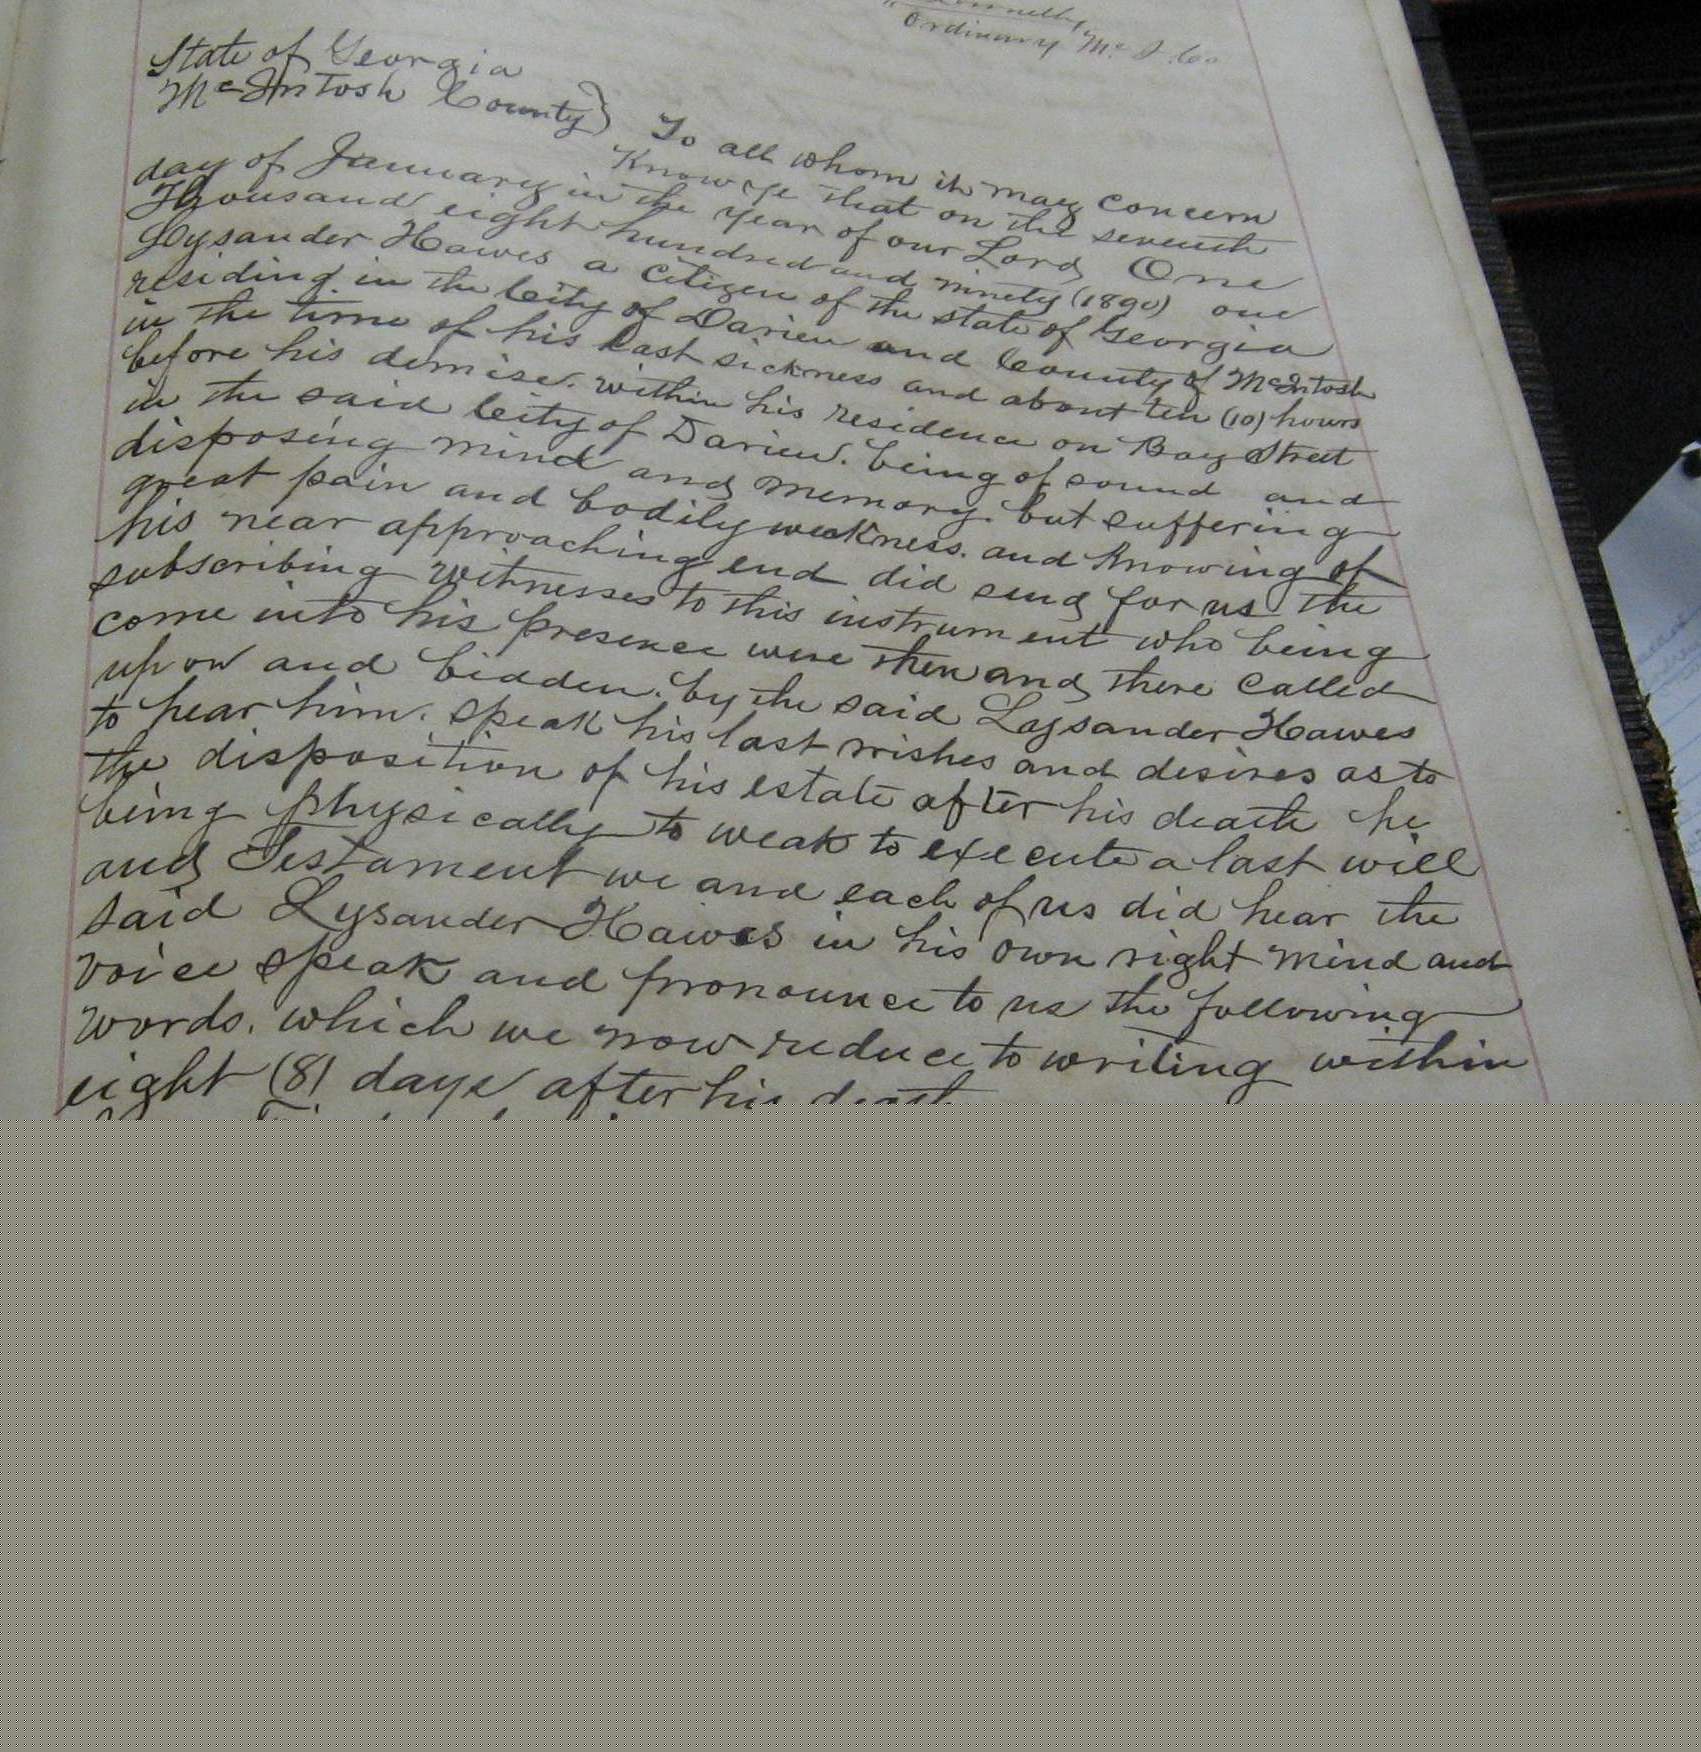 Ordinary Mc I. Co
State of Georgia
McIntosh County } To all whom it may concern
Know ye that on the seventh
day of January in the year of our Lord One
Thousand eight hundred and ninety (1890) one
Lysander Hawes a citizen of the state of Georgia
residing in the City of Darien and County of McIntosh
in the time of his last sickness and about ten (10) hours
before his demise. within his residence on Bay Street
in the said City of Darien. being of sound and
disposing mind and memory. but suffering
great pain and bodily weakness. and knowing of
his near approaching end did send for us the
subscribing witnesses to this instrument who being
come into his presence were then and there called
upon and bidden. by the said Lysander Hawes
to hear him. speak his last wishes and desires as to
the disposition of his estate after his death he
being physically to weak to execute a last will
and Testament we and each of us did hear the
said Lysander Hawes in his own right mind and
voice speak and pronounce to us the following
words. which we now reduce to writing within
eight (8) days after his death